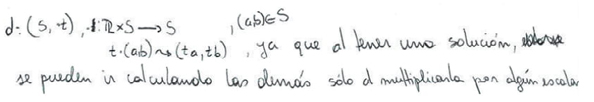 d: (S, t), t: ℝ×S → S , (a,b)∈S
t·(a,b) ⇝ (ta, tb) , ya que al tener una solución,
se pueden ir calculando las demás sólo d multiplicarla por algún escalar